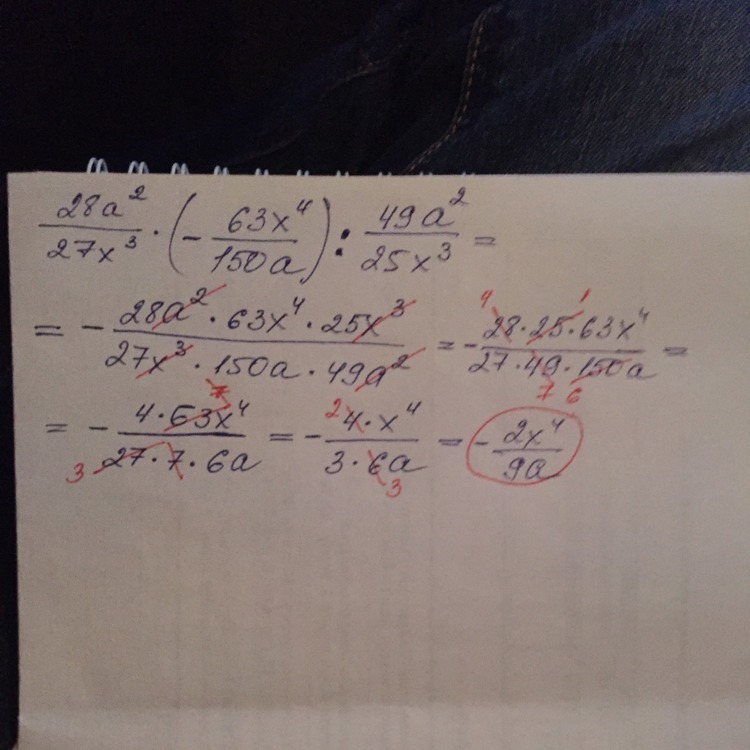 28a²/27x³ · (- 63x⁴/150a) : 49a²/25x³ =
= - 28a² · 63x⁴ · 25x³ / 27x³ · 150a · 49a² = - 28 · 25 · 63x⁴ / 27 · 49 · 150a =
4 1
7 6
= - 4 · 63x⁴ / 27 · 7 · 6a = - 4 · x⁴ / 3 · 6a = - 2x⁴/9a
7 2
3 3